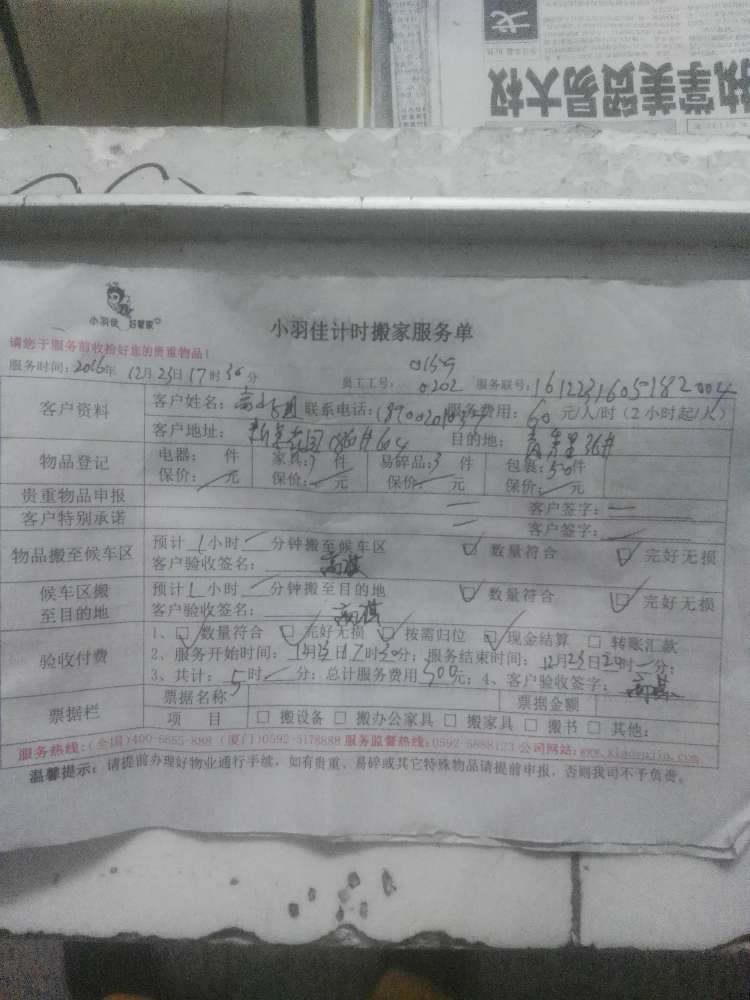 执掌美贸易大权
小羽佳 好管家
小羽佳计时搬家服务单
请您于服务前收拾好您的贵重物品!
服务时间: 2016年 12月23日17时30分 员工工号: 0159 0202 服务联号: 1612231605182004
客户资料
客户姓名: 联系电话: 服务费用: 60 元/人/时 (2小时起/人)
客户地址: 目的地:
物品登记
电器: 件 家具: 件 易碎品: 3 件 包裹: 50件
保价: 元 保价: 元 保价: 元 保价: 元
贵重物品申报 客户签字:
客户特别承诺 客户签字:
物品搬至候车区
预计 1 小时 分钟搬至候车区 ☑ 数量符合 ☑ 完好无损
客户验收签名:
候车区搬至目的地
预计 1 小时 分钟搬至目的地 ☑ 数量符合 ☑ 完好无损
客户验收签名:
验收付费
1、☑ 数量符合 ☑ 完好无损 ☑ 按需归位 ☑ 现金结算 □ 转账汇款
2、服务开始时间: 12月23日17时30分; 服务结束时间: 12月23日 时 分;
3、共计: 5时 分; 总计服务费用 300元; 4、客户验收签字:
票据栏
票据名称 票据金额
项目 □ 搬设备 □ 搬办公家具 □ 搬家具 □ 搬书 □ 其他:
服务热线: (全国)400-5655-888 (厦门)0592-5178888 服务监督热线: 0592-5688123 公司网站:
温馨提示: 请提前办理好物业通行手续, 如有贵重、易碎或其它特殊物品请提前申报, 否则我司不予负责。